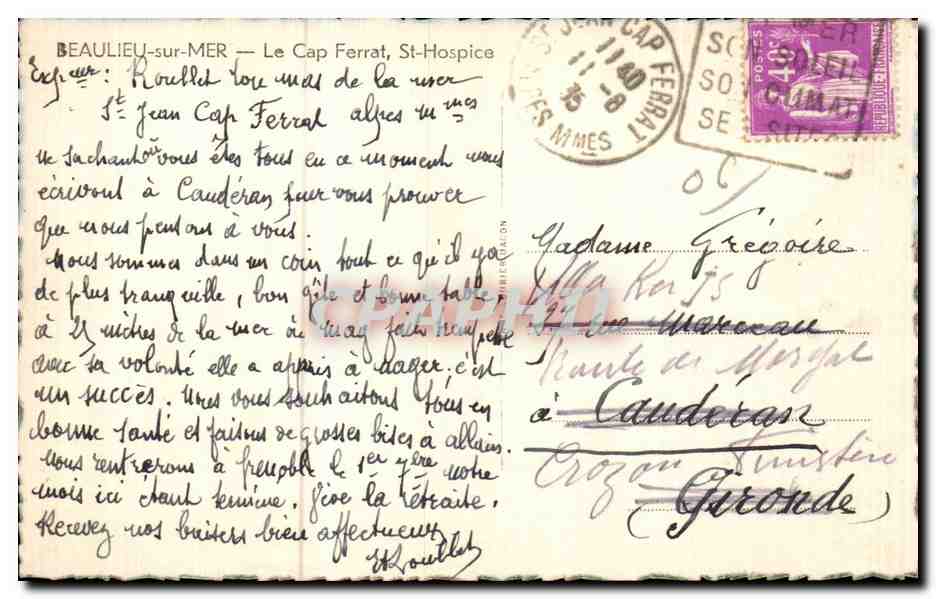 BEAULIEU-sur-MER — Le Cap Ferrat, St-Hospice
Expeur : Roullet tou mas de la mer
St Jean Cap Ferrat alpes mmes
ne sachant où vous êtes tous en ce moment nous
écrivont à Caudéran pour vous prouver
que nous pensons à vous.
Nous sommes dans un coin tout ce qu'il y a
de plus tranquille, bon gîte et bonne table,
à 25 mètres de la mer où mag fait trempette
avec sa volonté elle a appris à nager. c'est
un succès. Nous vous souhaitons tous en
bonne santé et faisons de grosses bises à allain.
nous rentrerons à Grenoble le 1er 7bre notre
mois ici étant terminé. Vive la retraite.
Recevez nos baisers bien affectueux
Roullet
ST JEAN CAP FERRAT
11 40
11 -8
35
ALPES MMES
MER
SOLEIL
CLIMAT
SITES
POSTES
40c
REPUBLIQUE FRANCAISE
Madame Grégoire
Villa Ker
27 rue Marceau
Route de Morgat
à Caudéran
Crozon Finistère
(Gironde)
CPAPHD